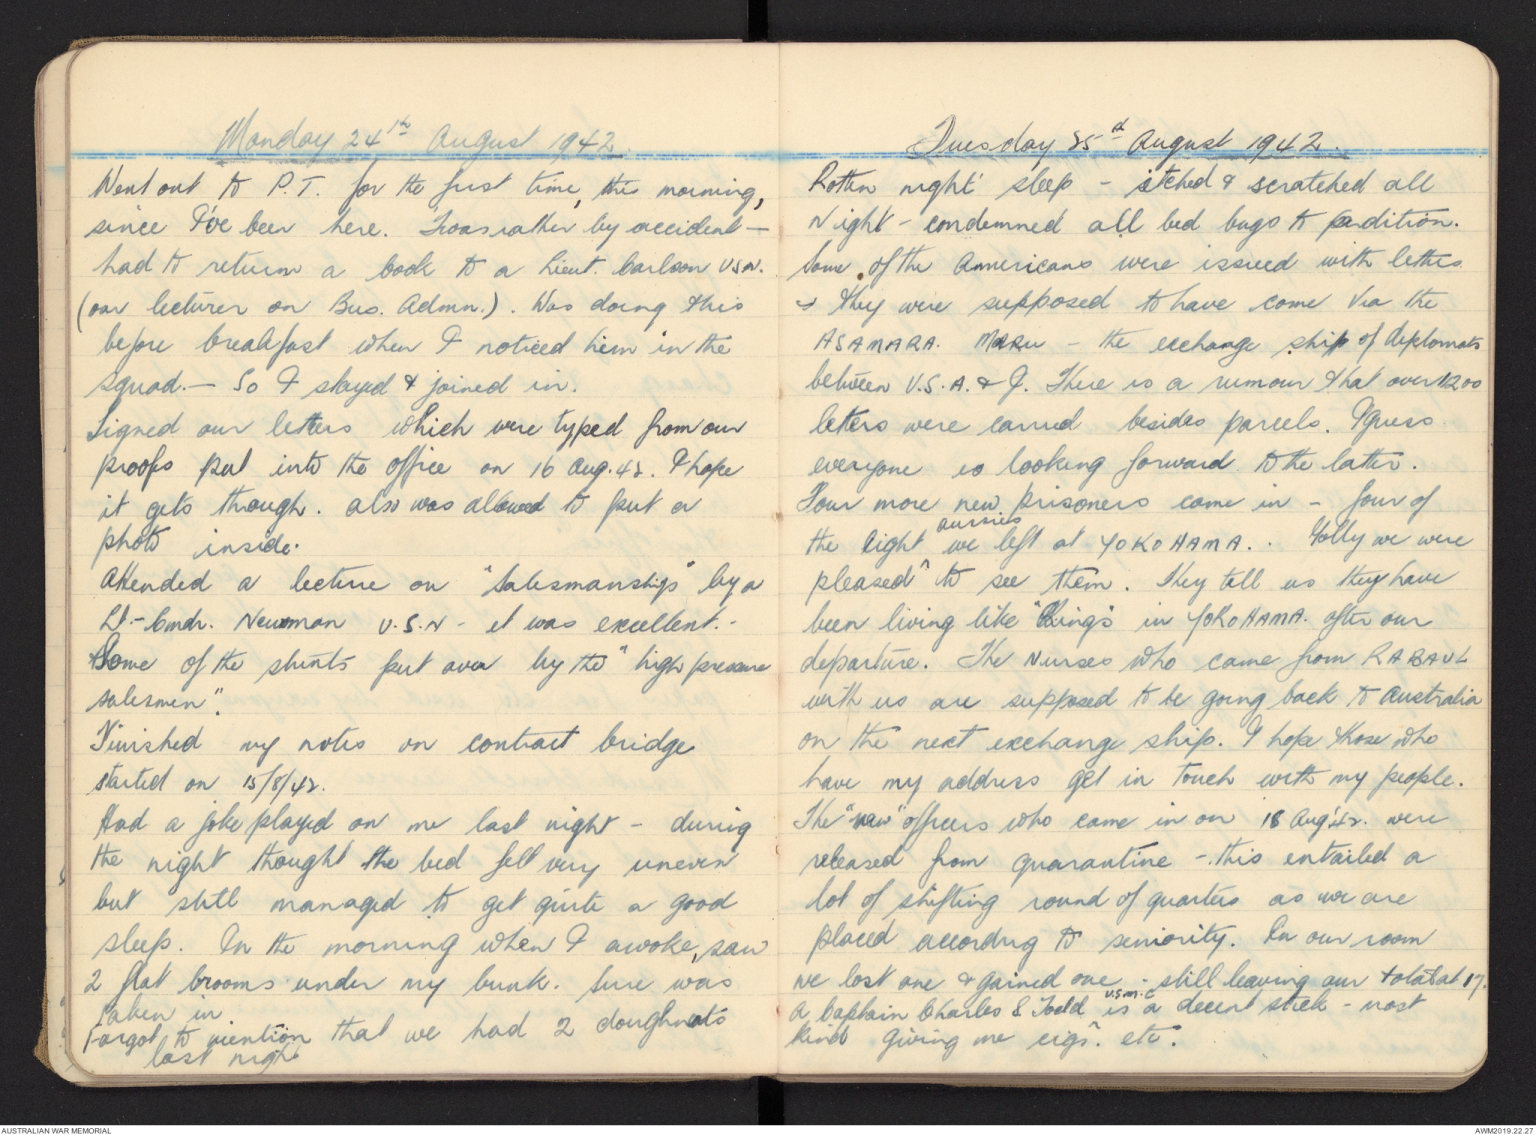 Monday 24th August 1942.
Went out to P.T. for the first time, this morning,
since I've been here. Twas rather by accident —
had to return a book to a Lieut. Carlson U.S.N.
(our lecturer on Bus. Admn.). Was doing this
before breakfast when I noticed him in the
squad. — So I stayed & joined in.
Signed our letters which were typed from our
proofs put into the office on 16 Aug. 42. I hope
it gets through. Also was allowed to put a
photo inside.
Attended a lecture on "Salesmanship" by a
Lt.-Cmdr. Newman U.S.N - it was excellent. -
Some of the stunts put over by the "high pressure
salesmen".
Finished my notes on contract bridge
started on 15/8/42.
Had a joke played on me last night - during
the night thought the bed felt very uneven
but still managed to get quite a good
sleep. In the morning when I awoke, saw
2 flat brooms under my bunk. Sure was
taken in
Forgot to mention that we had 2 doughnuts
last night
Tuesday 25th August 1942.
Rotten night' sleep - itched & scratched all
Night - condemned all bed bugs to perdition.
Some of the Americans were issued with letters
→ they were supposed to have come via the
ASAMARA. MARU - the exchange ship of diplomats
between U.S.A. & J. There is a rumour that over 1200
letters were carried besides parcels. I guess
everyone is looking forward to the latter.
Four more new prisoners came in - four of
the eight aussies we left at YOKOHAMA. . Golly we were
pleased to see them. They tell us they have
been living like "Kings" in YOKOHAMA. after our
departure. The Nurses who came from RABAUL
with us are supposed to be going back to Australia
on the next exchange ship. I hope those who
have my address get in touch with my people.
The "new" officers who came in on 18 Aug '42. were
released from quarantine - this entailed a
lot of shifting round of quarters as we are
placed according to seniority. In our room
we lost one & gained one - still leaving our total at 17.
A Captain Charles S. Todd U.S.M.C is a decent stick - most
kind giving me cigs. etc.